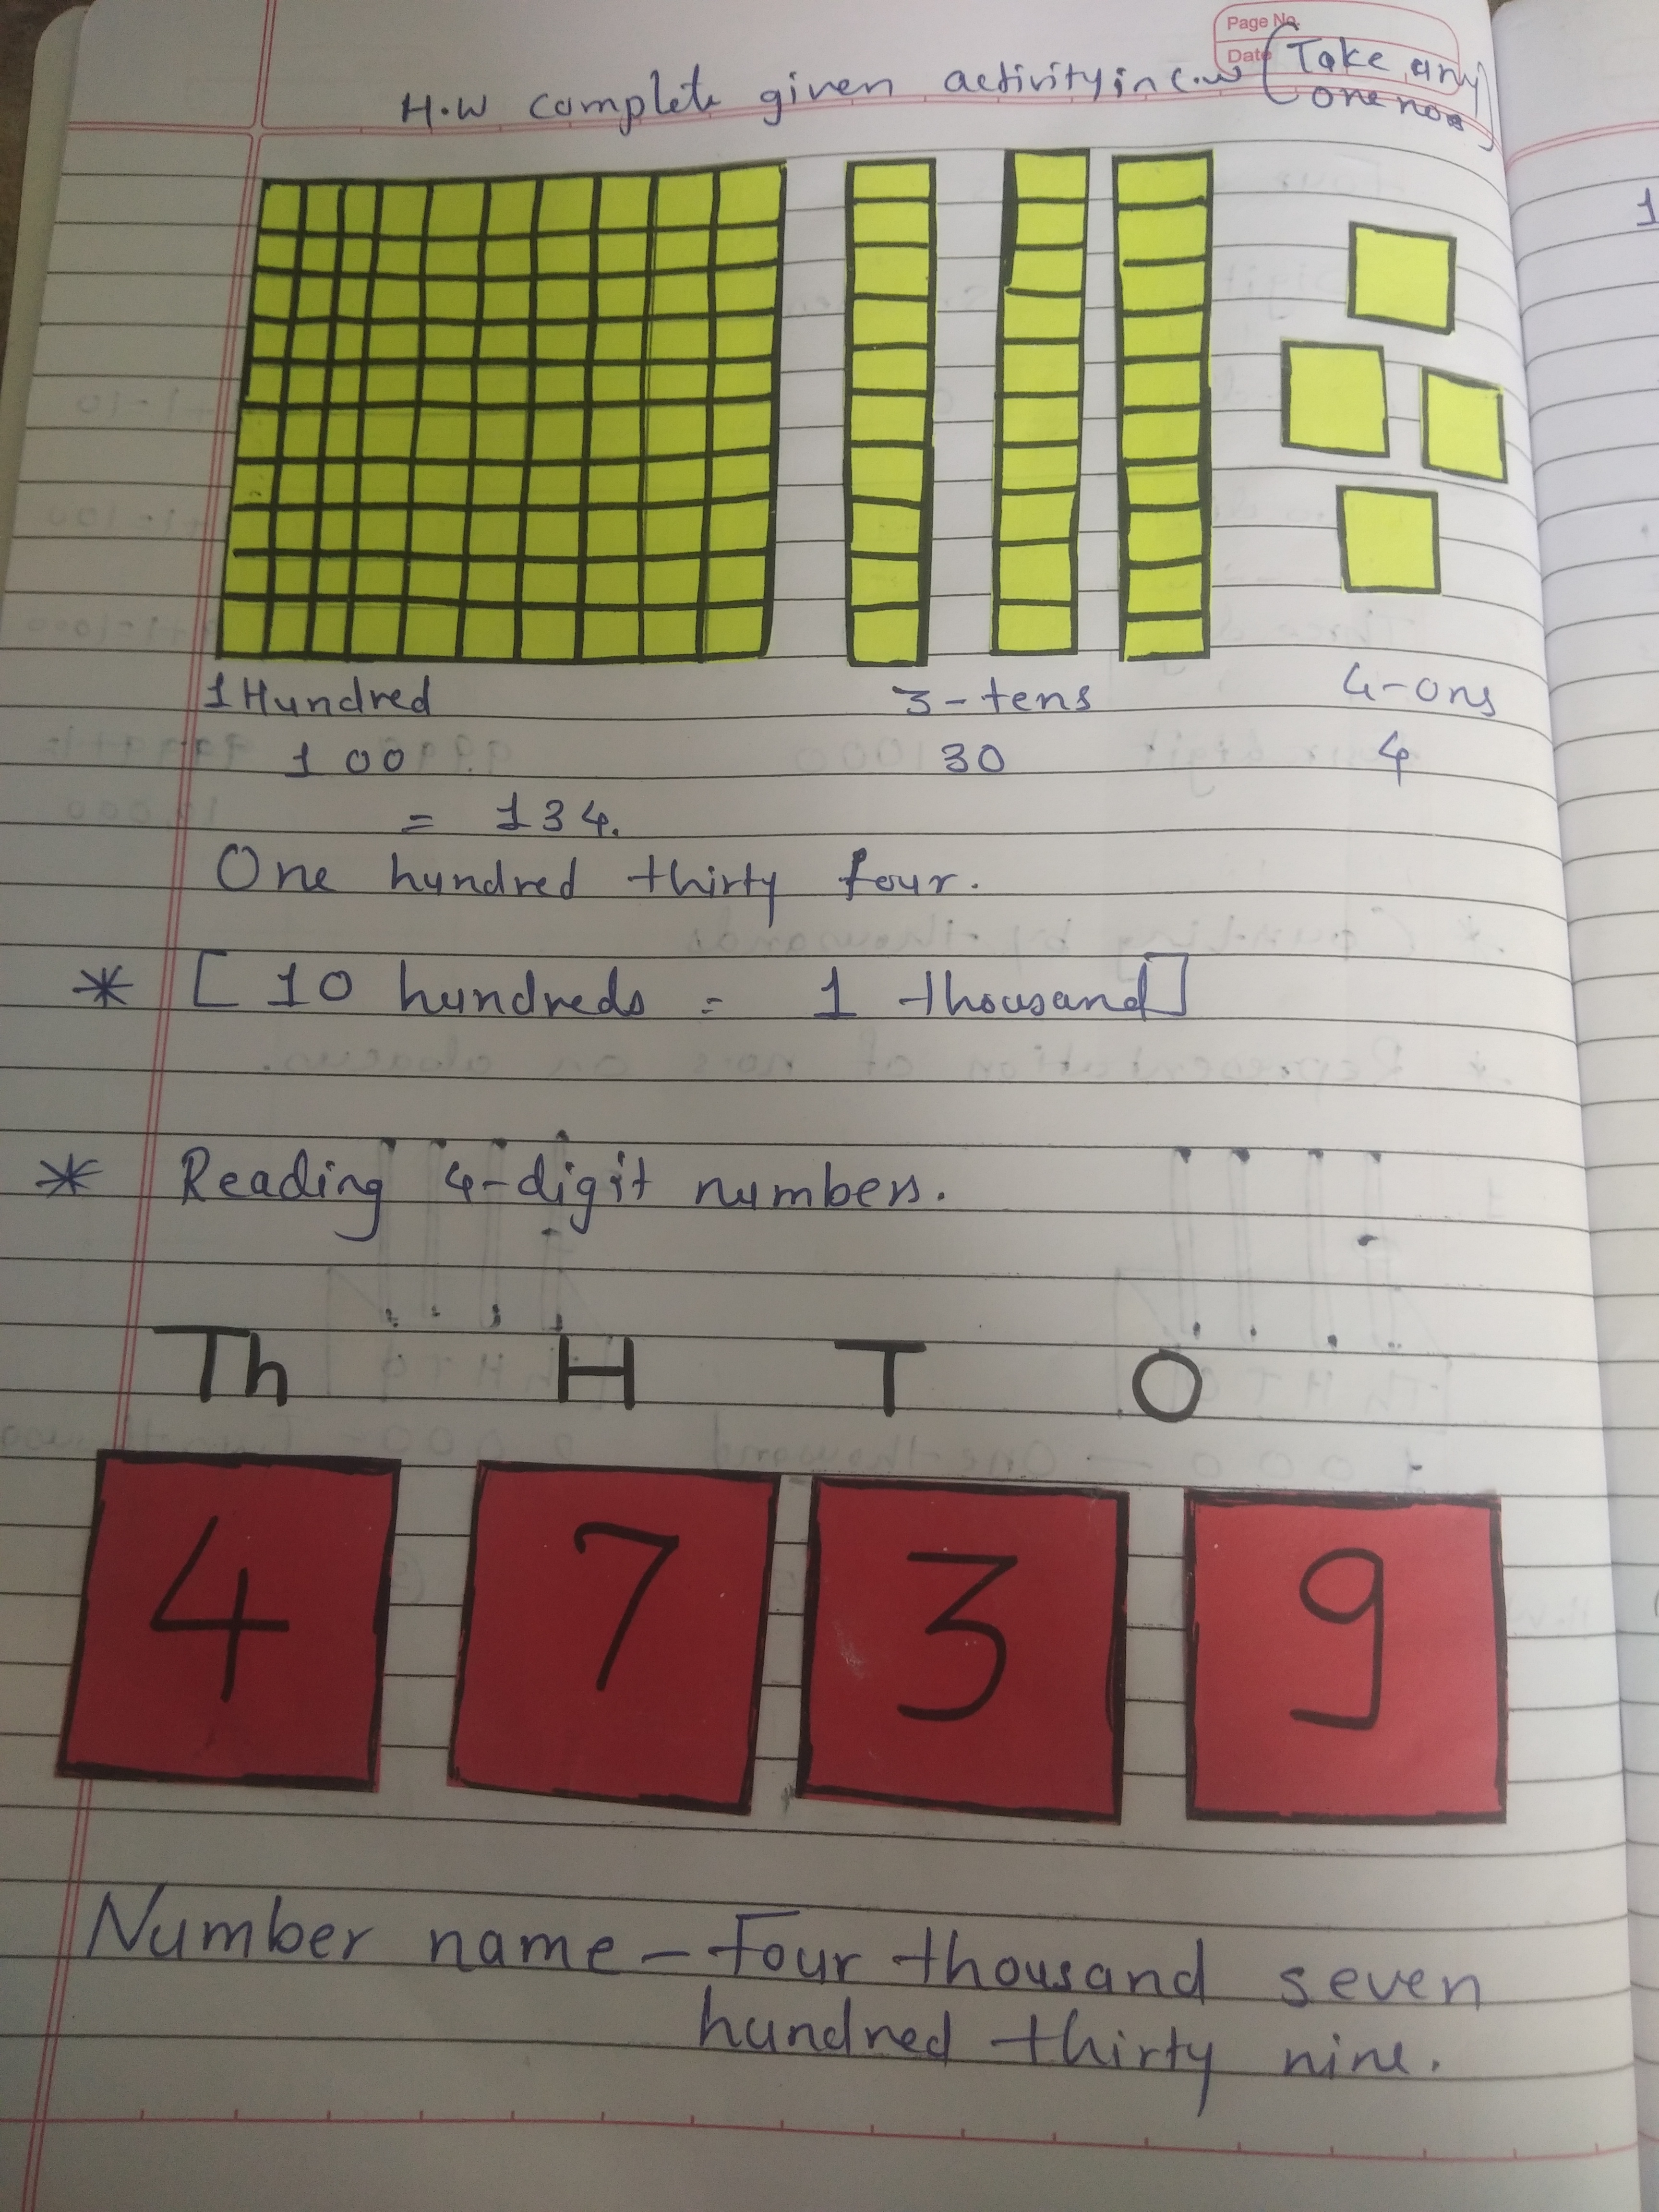 Page No.
Date
H.W complete given activity in c.w (Take any
one nos)
1 Hundred 3-tens 4-ons
100 30 4
= 134.
One hundred thirty four.
* [10 hundreds = 1 thousand]
* Reading 4-digit numbers.
Th H T O
4 7 3 9
Number name - Four thousand seven
hundred thirty nine.
1